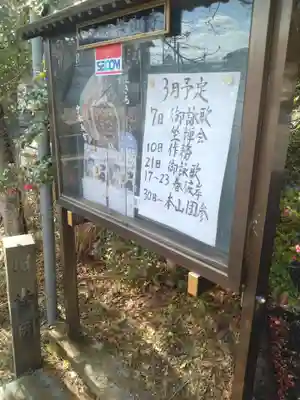 SECOM
3月予定
7日 御詠歌
坐禅会
10日 作務
21日 御詠歌
17~23 春彼岸
30日~ 本山団参